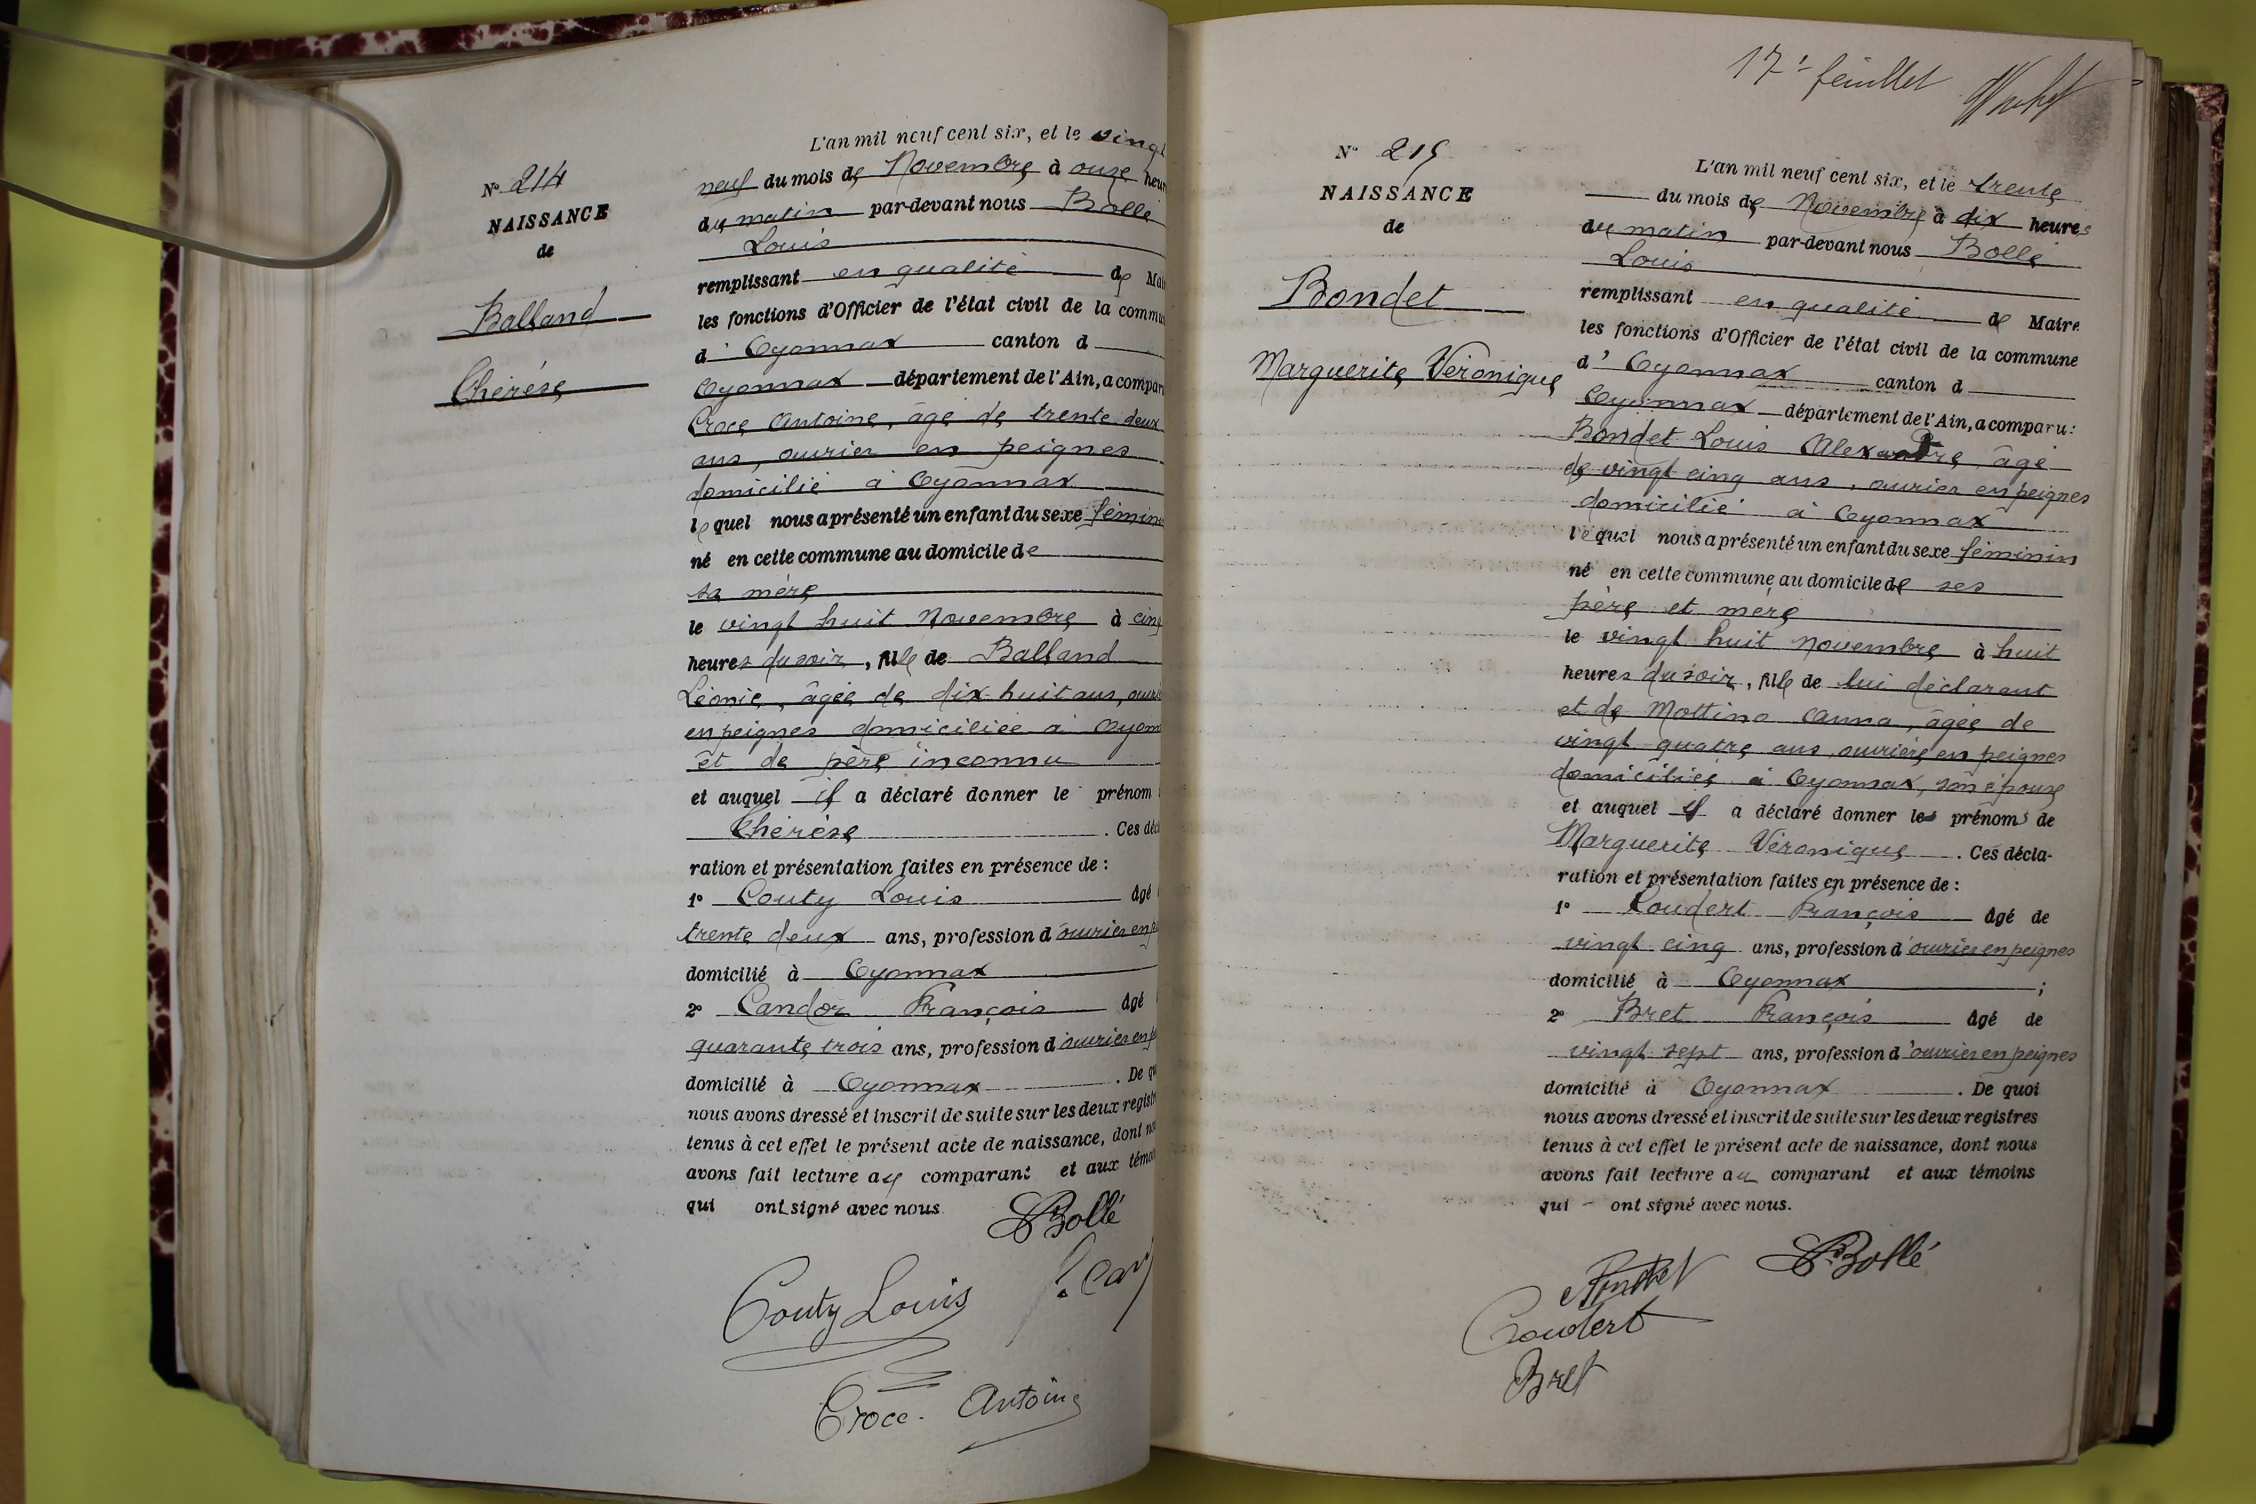 L'an mil neuf cent six, et le vingt
N° 214
NAISSANCE
de
Balland
Thérèse
neuf du mois de Novembre à onze heur
du matin par-devant nous Bollé
Louis
remplissant en qualité de Mai
les fonctions d'Officier de l'état civil de la commu
d' Oyonnax canton d
Oyonnax département de l'Ain, a compar
Croce Antoine, âgé de trente deux
ans, ouvrier en peignes
domicilié à Oyonnax
lequel nous a présenté un enfant du sexe fémin
né en cette commune au domicile de
sa mère
le vingt huit Novembre à cinq
heures du soir, fille de Balland
Léonie, âgée de dix huit ans, ouvri
en peignes domiciliée à Oyonn
et de père inconnu
et auquel il a déclaré donner le prénom
Thérèse. Ces décl
ration et présentation faites en présence de :
1° Couty Louis âgé
trente deux ans, profession d'ouvrier en p
domicilié à Oyonnax
2° Candor François âgé
quarante trois ans, profession d'ouvrier en p
domicilié à Oyonnax. De qu
nous avons dressé et inscrit de suite sur les deux registr
tenus à cet effet le présent acte de naissance, dont no
avons fait lecture au comparant et aux témoi
qui ont signé avec nous
Bollé
Couty Louis
Croce Antoine
17e feuillet
N° 215
NAISSANCE
de
Bondet
Marguerite Véronique
L'an mil neuf cent six, et le trente
du mois de Novembre à dix heures
du matin par-devant nous Bollé
Louis
remplissant en qualité de Maire
les fonctions d'Officier de l'état civil de la commune
d' Oyonnax canton d
Oyonnax département de l'Ain, a comparu :
Bondet Louis Alexandre, âgé
de vingt cinq ans, ouvrier en peignes
domicilié à Oyonnax
lequel nous a présenté un enfant du sexe féminin
né en cette commune au domicile de ses
père et mère
le vingt huit novembre à huit
heures du soir, fille de lui déclarant
et de Mottino Anna, âgée de
vingt quatre ans, ouvrière en peignes
domiciliée à Oyonnax, son épouse
et auquel il a déclaré donner les prénoms de
Marguerite Véronique. Ces décla-
ration et présentation faites en présence de :
1° Coudert François âgé de
vingt cinq ans, profession d'ouvrier en peignes
domicilié à Oyonnax ;
2° Bret François âgé de
vingt sept ans, profession d'ouvrier en peignes
domicilié à Oyonnax. De quoi
nous avons dressé et inscrit de suite sur les deux registres
tenus à cet effet le présent acte de naissance, dont nous
avons fait lecture au comparant et aux témoins
qui ont signé avec nous.
Bollé
Coudert
Bret